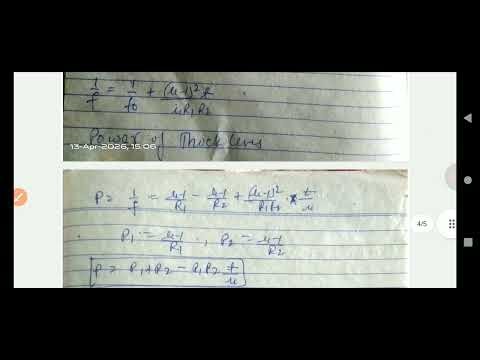 1/f = 1/f0 + (μ-1)² t / μR1R2
Power of Thick lens
13-Apr-2026, 15:06
P = 1/f = μ-1/R1 - μ-1/R2 + (μ-1)²/R1R2 * t/μ
4/5
P1 = μ-1/R1 , P2 = μ-1/R2
P = P1+P2 - P1P2 t/μ